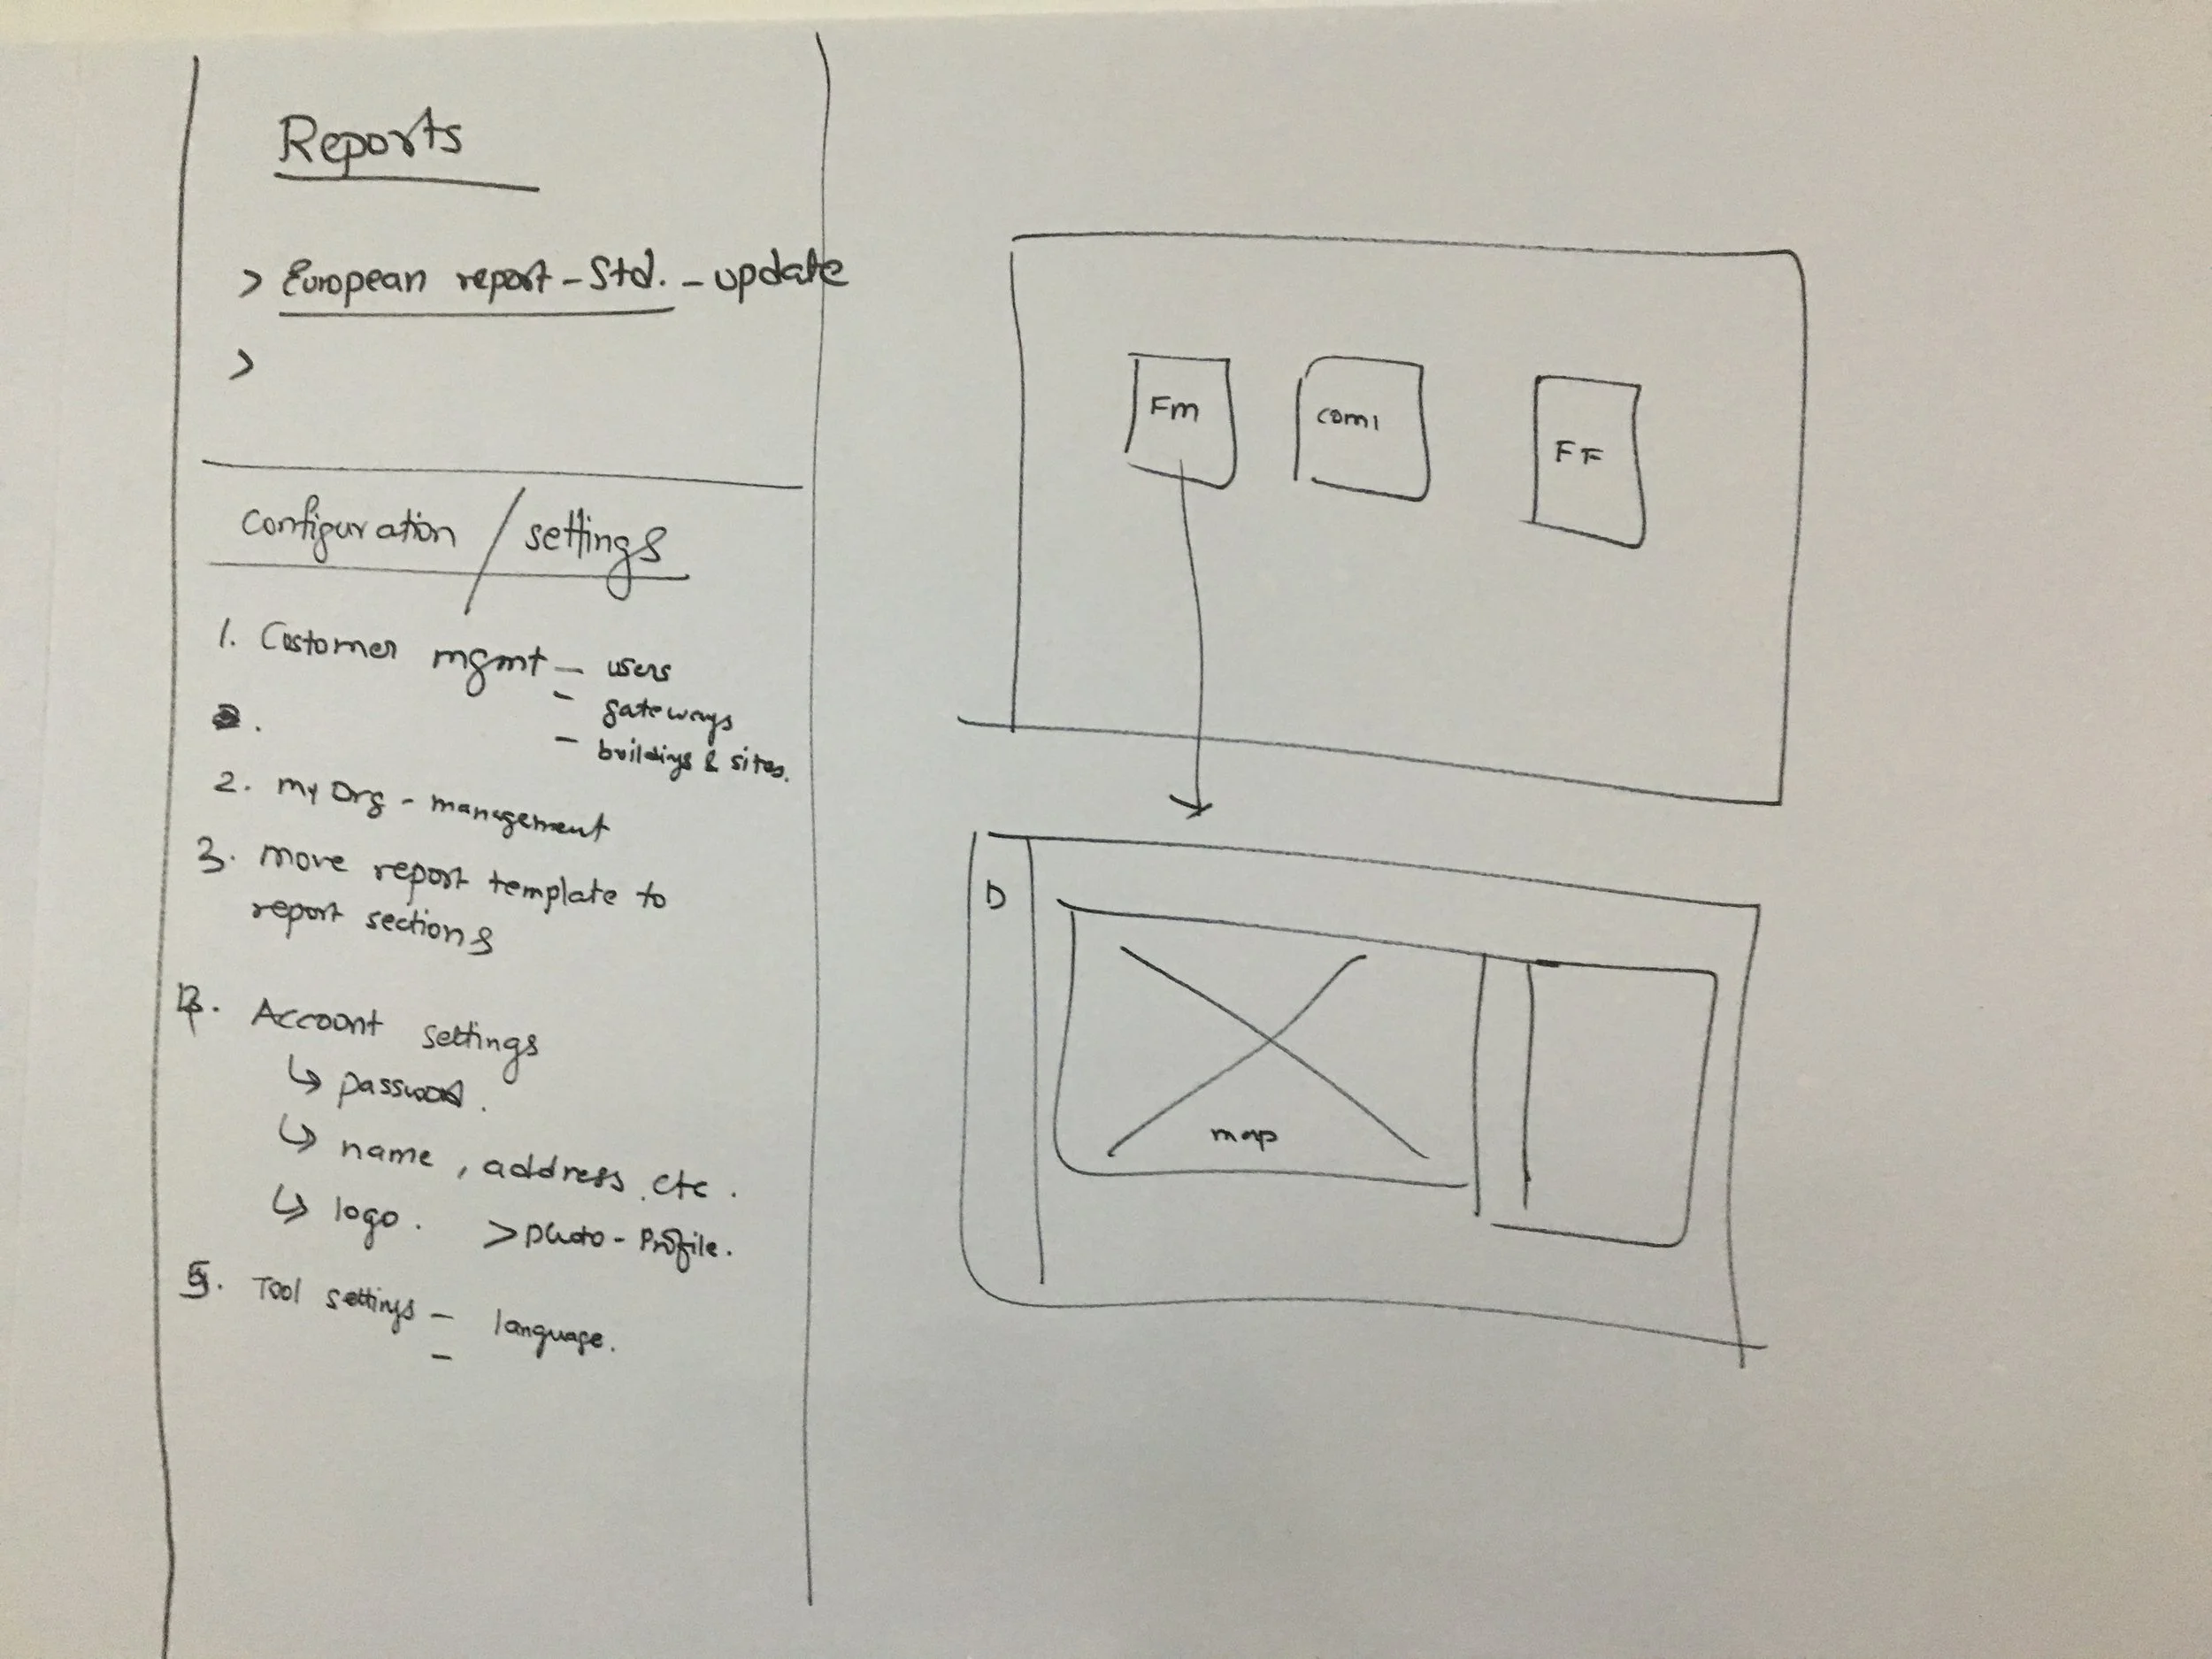 Reports
> European report - Std. - update
>
configuration / settings
1. Customer mgmt - users
- gateways
- buildings & sites.
2. my Org - management
3. move report template to
report sections
Account settings
↳ password.
↳ name, address etc.
↳ logo. > photo - Profile.
5. Tool settings - language.
-
Fm
com1
FF
D
map